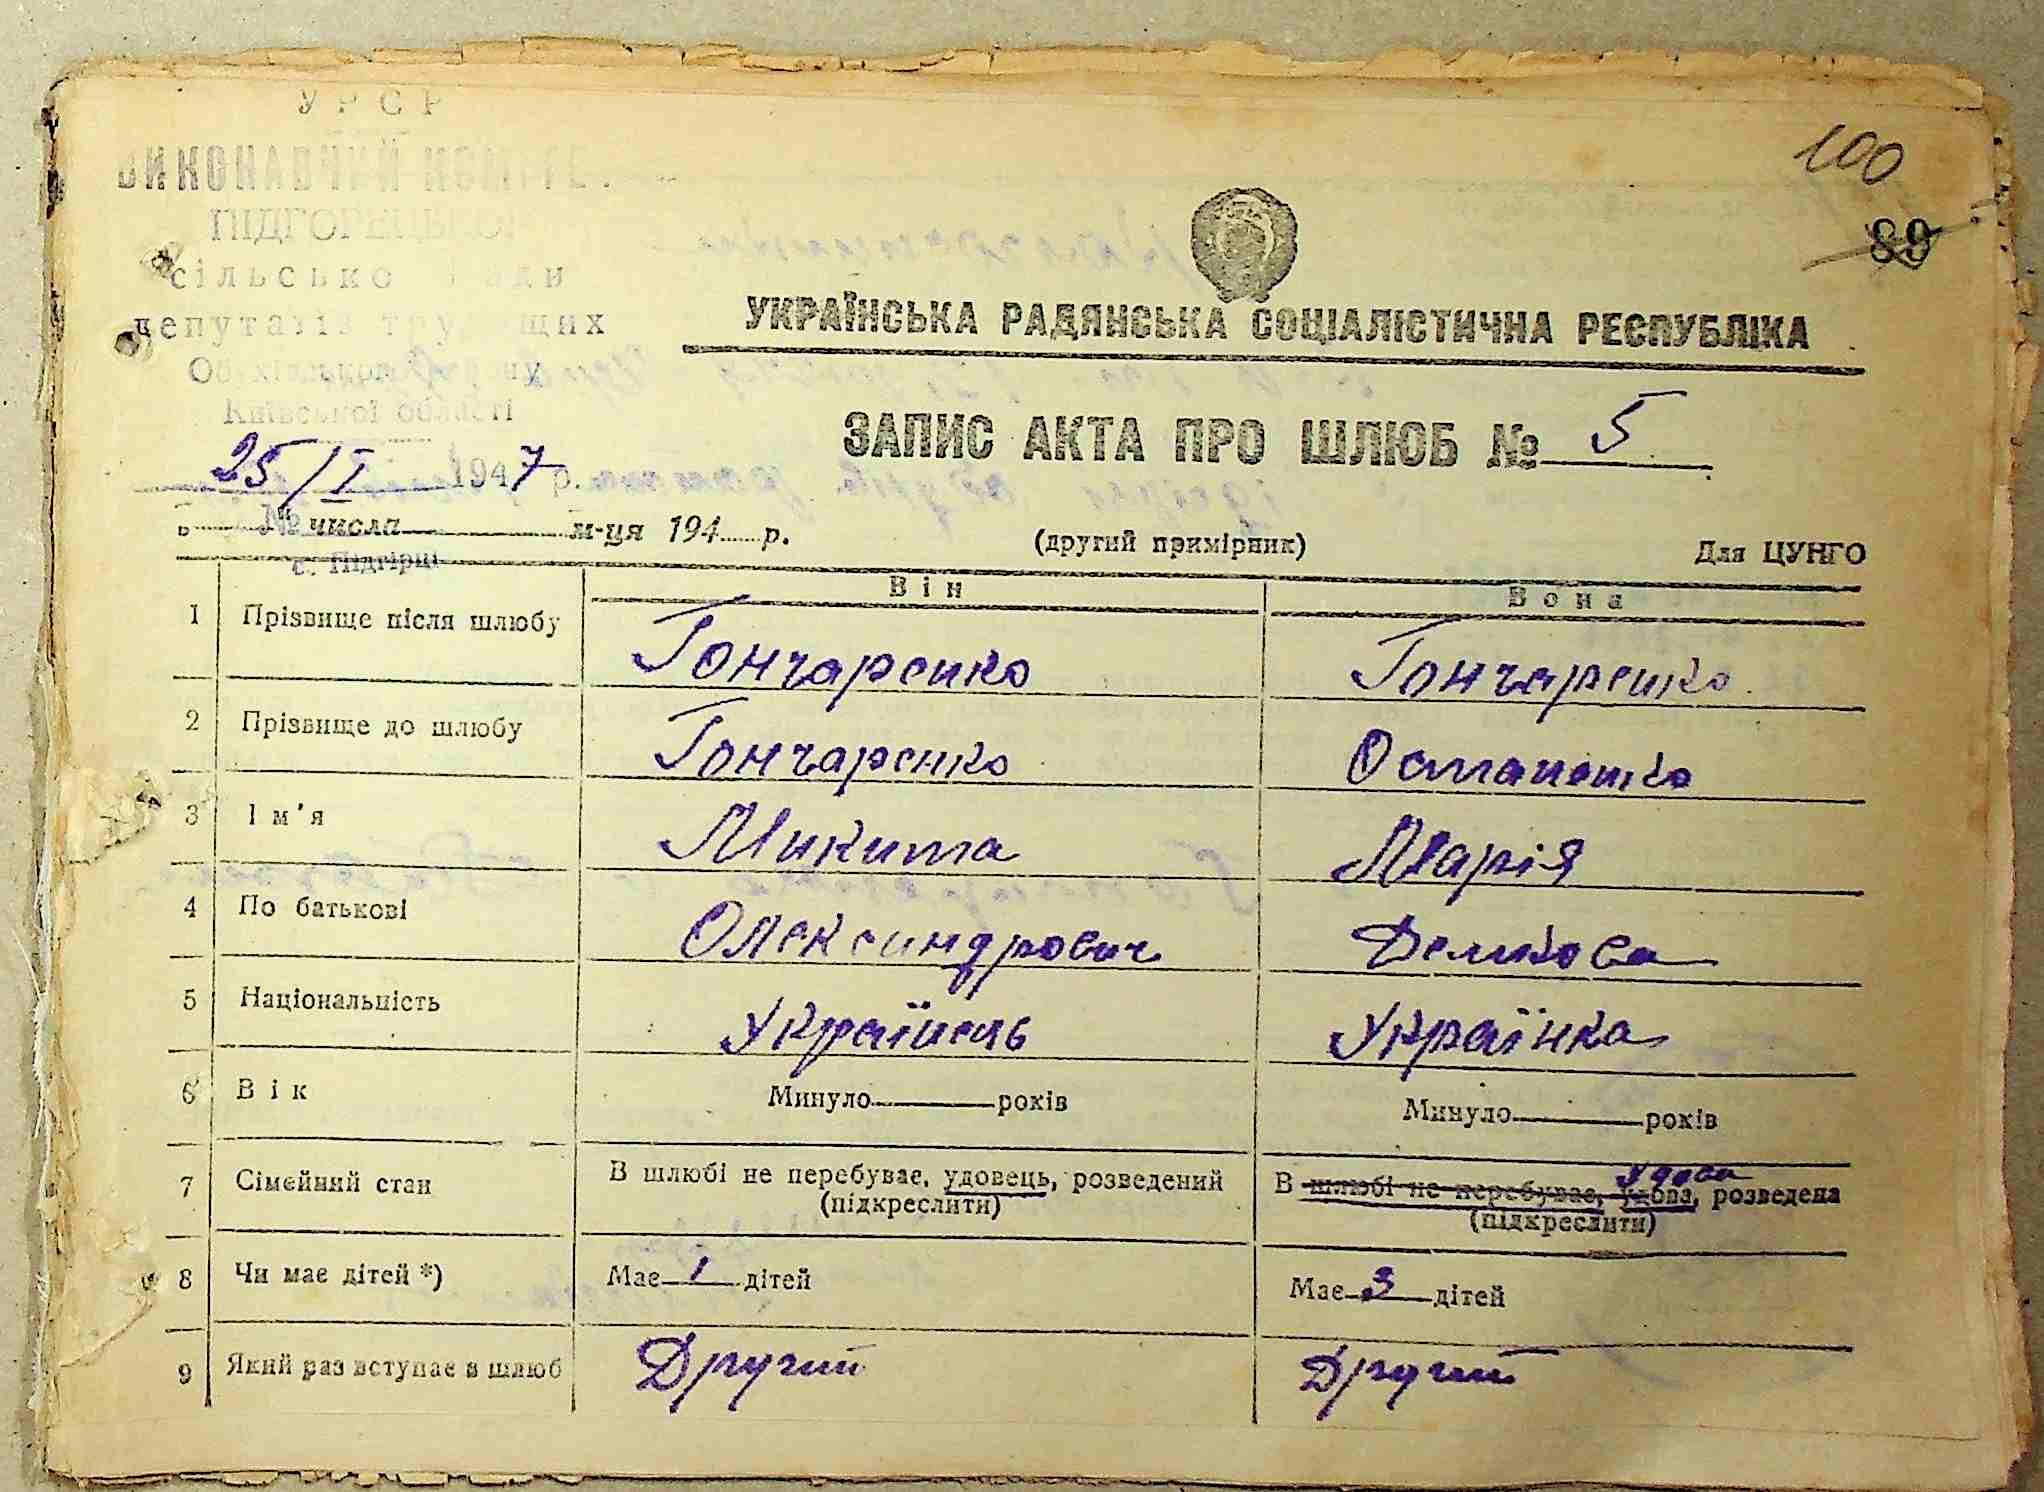 УРСР
ВИКОНАВЧИЙ КОМІТЕ
100
ПІДГОРЕЦЬКОЇ
89
сільсько ради
депутатів трудящих
УКРАЇНСЬКА РАДЯНСЬКА СОЦІАЛІСТИЧНА РЕСПУБЛІКА
Обухівського району
Київської області
ЗАПИС АКТА ПРО ШЛЮБ № 5
25/I 1947 р.
№ числа м-ця 194 р.
(другий примірник)
Для ЦУНГО
с. Підгірці
Він Вона
1 Прізвище після шлюбу Гончаренко Гончаренко
2 Прізвище до шлюбу Гончаренко Остапенко
3 Ім'я Микита Марія
4 По батькові Олександрович Демкова
5 Національність Українець Українка
6 Вік Минуло років Минуло років
7 Сімейний стан В шлюбі не перебуває, удовець, розведений В шлюбі не перебуває, удова, удова, розведена
(підкреслити) (підкреслити)
8 Чи має дітей *) Має 1 дітей Має 3 дітей
9 Який раз вступає в шлюб Другий Другий